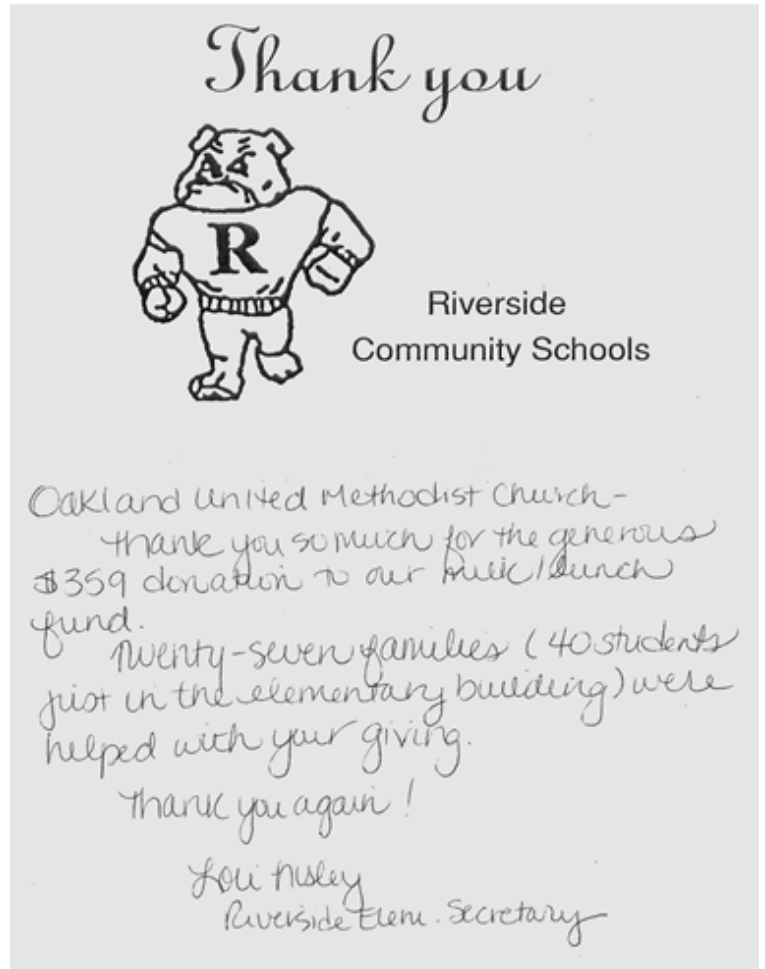 Thank you
R
Riverside
Community Schools
Oakland United Methodist Church-
Thank you so much for the generous
$359 donation to our milk/lunch
fund.
Twenty-seven families (40 students
just in the elementary building) were
helped with your giving.
Thank you again!
Lori Nisley
Riverside Elem. Secretary